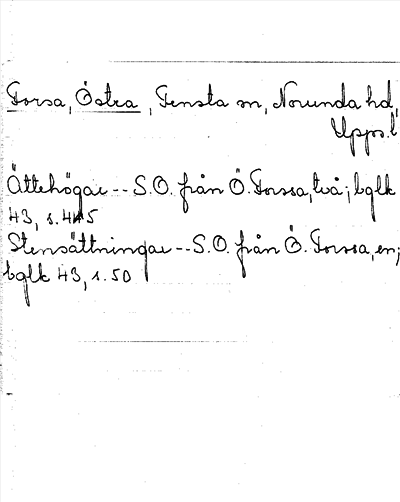 Forsa, Östra, Tensta sn, Norunda hd,
Upps.l
Ättehögar -- S.O. från Ö. Forssa, två; bglk
43, s. 45
Stensättningar -- S.O. från Ö. Forssa, en;
bglk 43, s. 50